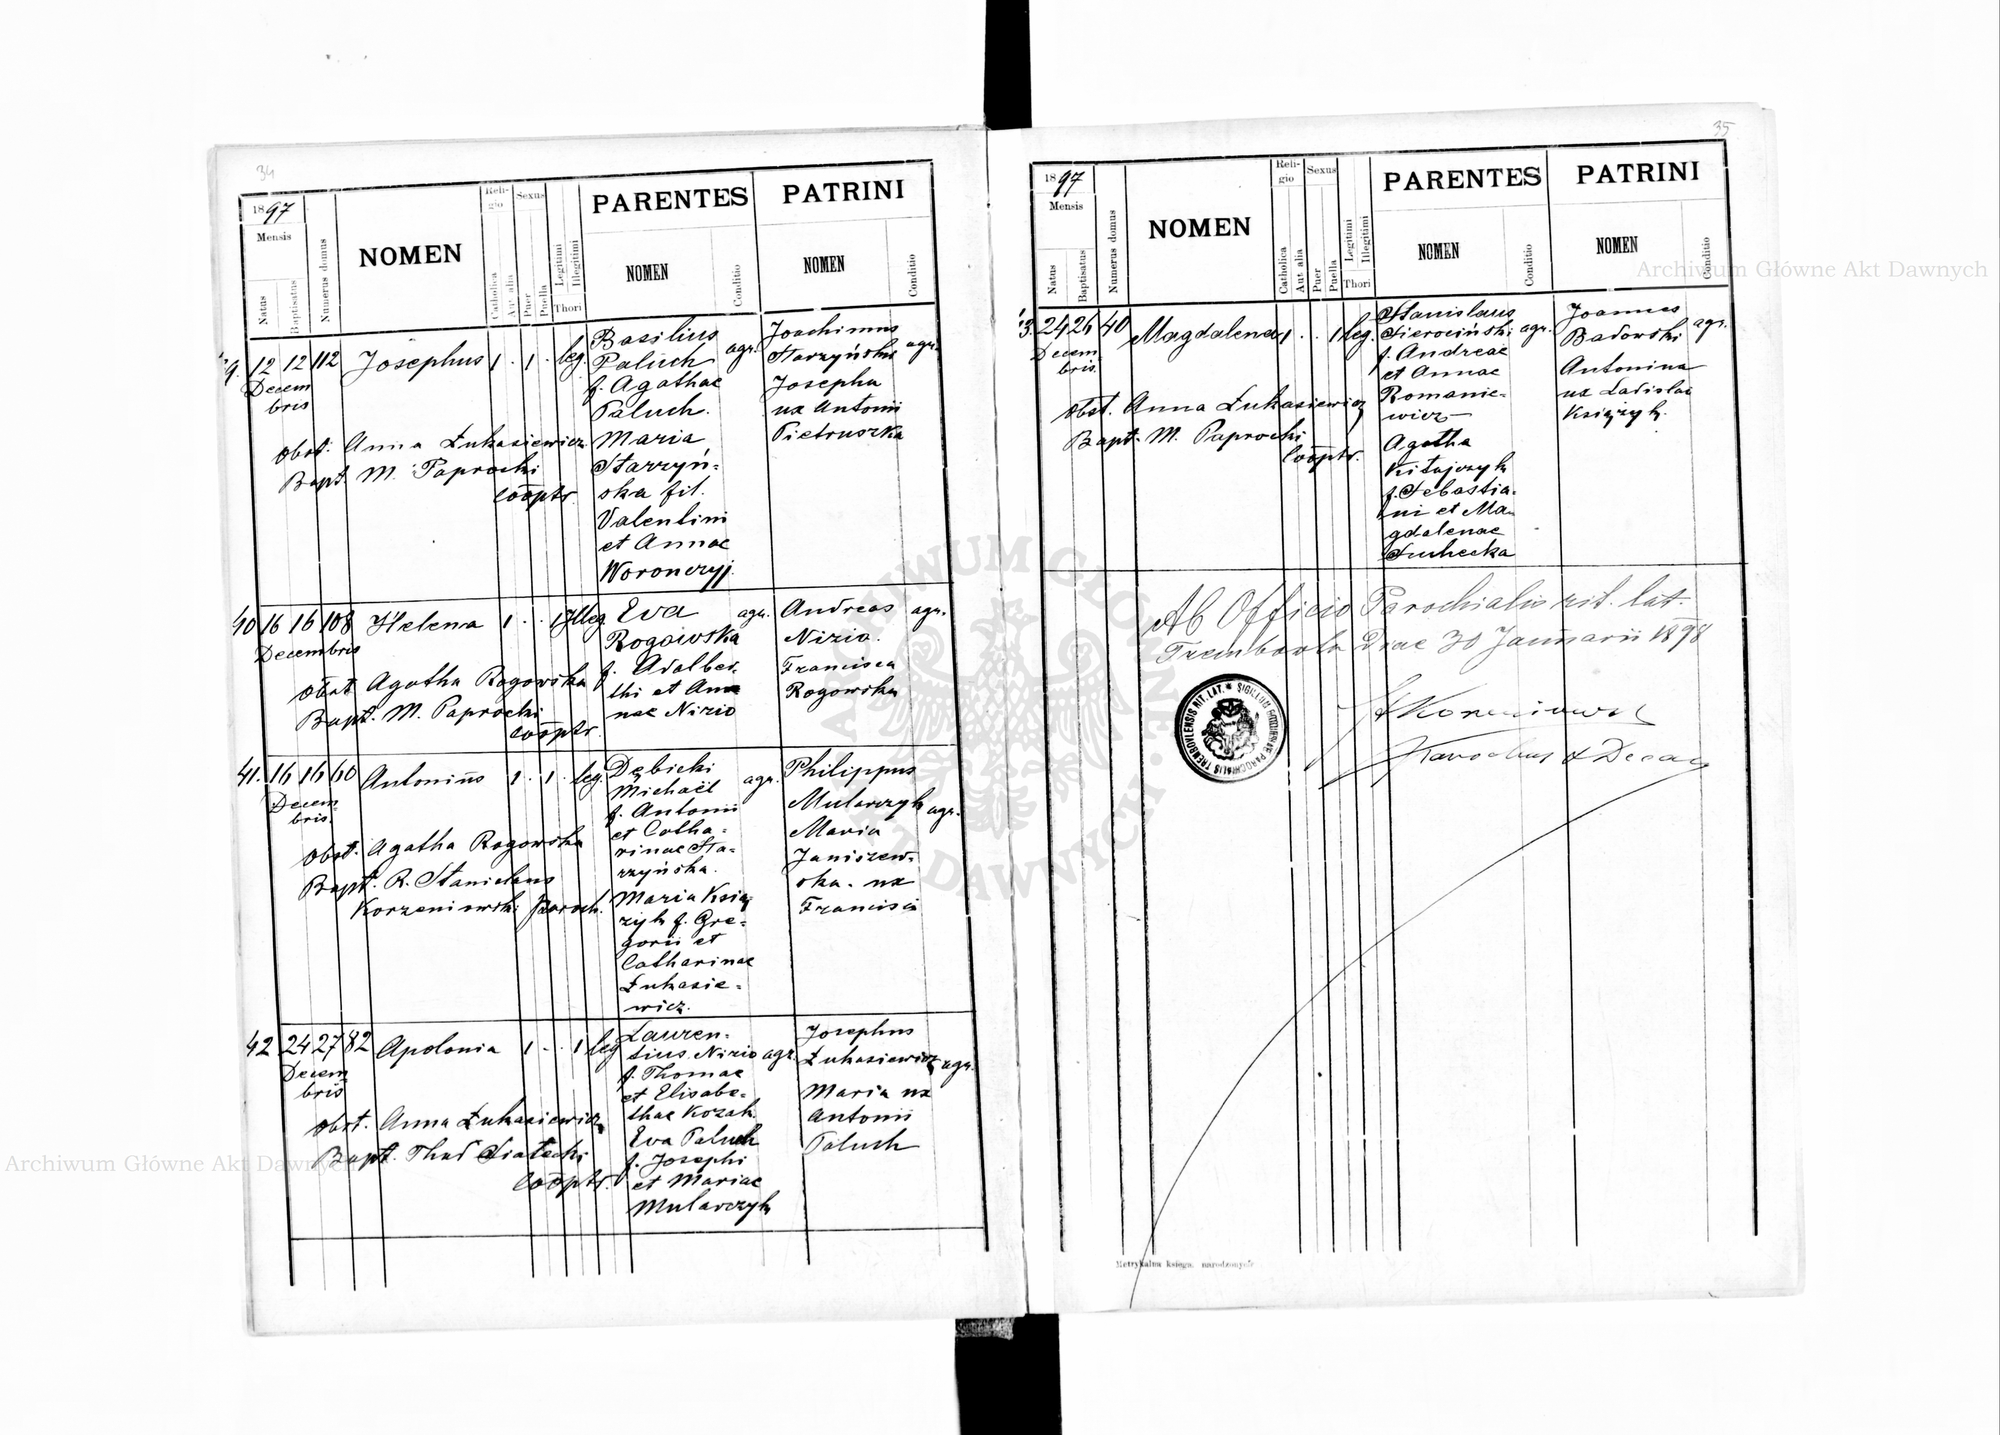 34
1897
Mensis
Natus
Baptisatus
Numerus domus
NOMEN
Religio
Catholica
Aut alia
Sexus
Puer
Puella
Legitimi
Illegitimi
Thori
PARENTES
NOMEN
Conditio
PATRINI
NOMEN
Conditio
9. 12 12 112 Josephus 1 . 1 . leg.
Decem
bris
Obst. Anna Łukasiewicz
Bapt. M. Paprocki
Cooptr.
Basilius
Paluch agr.
f. Agathae
Paluch.
Maria
Starzyń-
ska fil.
Valentini
et Annae
Woronczyj.
Joachimus
Starzyński agr.
Josepha
ux Antonii
Pietruszka
40 16 16 108 Helena 1 . . 1 Illeg.
Decembris
Obst. Agatha Rogowska
Bapt. M. Paprocki
Cooptr.
Eva agr.
Rogowska
f. Adalber-
thi et An-
nae Nizio
Andreas agr.
Nizio.
Francisca
Rogowska
41. 16 16 60 Antonius 1 . 1 . leg.
Decem
bris.
Obst. Agatha Rogowska
Bapt. R. Stanislaus
Korzeniowski Paroch.
Dębicki agr.
Michaël
f. Antonii
et Catha-
rinae Sta-
rzyńska.
Maria Księ-
zyk f. Gre-
gorii et
Catharinae
Łukasie-
wicz.
Philippus
Mularczyk agr.
Maria
Janiszew-
ska. ux
Francisci
42 24 27 82 Apolonia 1 . . 1 leg
Decem
bris
Obst. Anna Łukasiewicz
Bapt. Thad Siatecki
Cooptr.
Lauren-
tius Nizio agr.
f. Thomae
et Elisabe-
thae Kozak
Eva Paluch
f. Josephi
et Mariae
Mularczyk
Josephus
Łukasiewicz agr.
Maria ux
Antonii
Paluch
35
1897
Mensis
Natus
Baptisatus
Numerus domus
NOMEN
Religio
Catholica
Aut alia
Sexus
Puer
Puella
Legitimi
Illegitimi
Thori
PARENTES
NOMEN
Conditio
PATRINI
NOMEN
Conditio
3. 24 26 40 Magdalena 1 . . 1 leg.
Decem
bris.
Obst. Anna Łukasiewicz
Bapt. M. Paprocki
Cooptr.
Stanislaus
Sierociński agr.
f. Andreae
et Annae
Romanie-
wicz
Agatha
Kitajczyk
f. Sebastia-
ni et Ma-
gdalenae
Suchecka
Joannes
Badowski agr.
Antonina
ux Ladislai
Księzyk.
Ab Officio Parochialis rit. lat.
Trembowla Diae 30 Januarii 1898
Parochus & Decan
Metrykalna księga narodzonych
Archiwum Główne Akt Dawnych
Archiwum Główne Akt Dawnych
ARCHIWUM GŁÓWNE AKT DAWNYCH